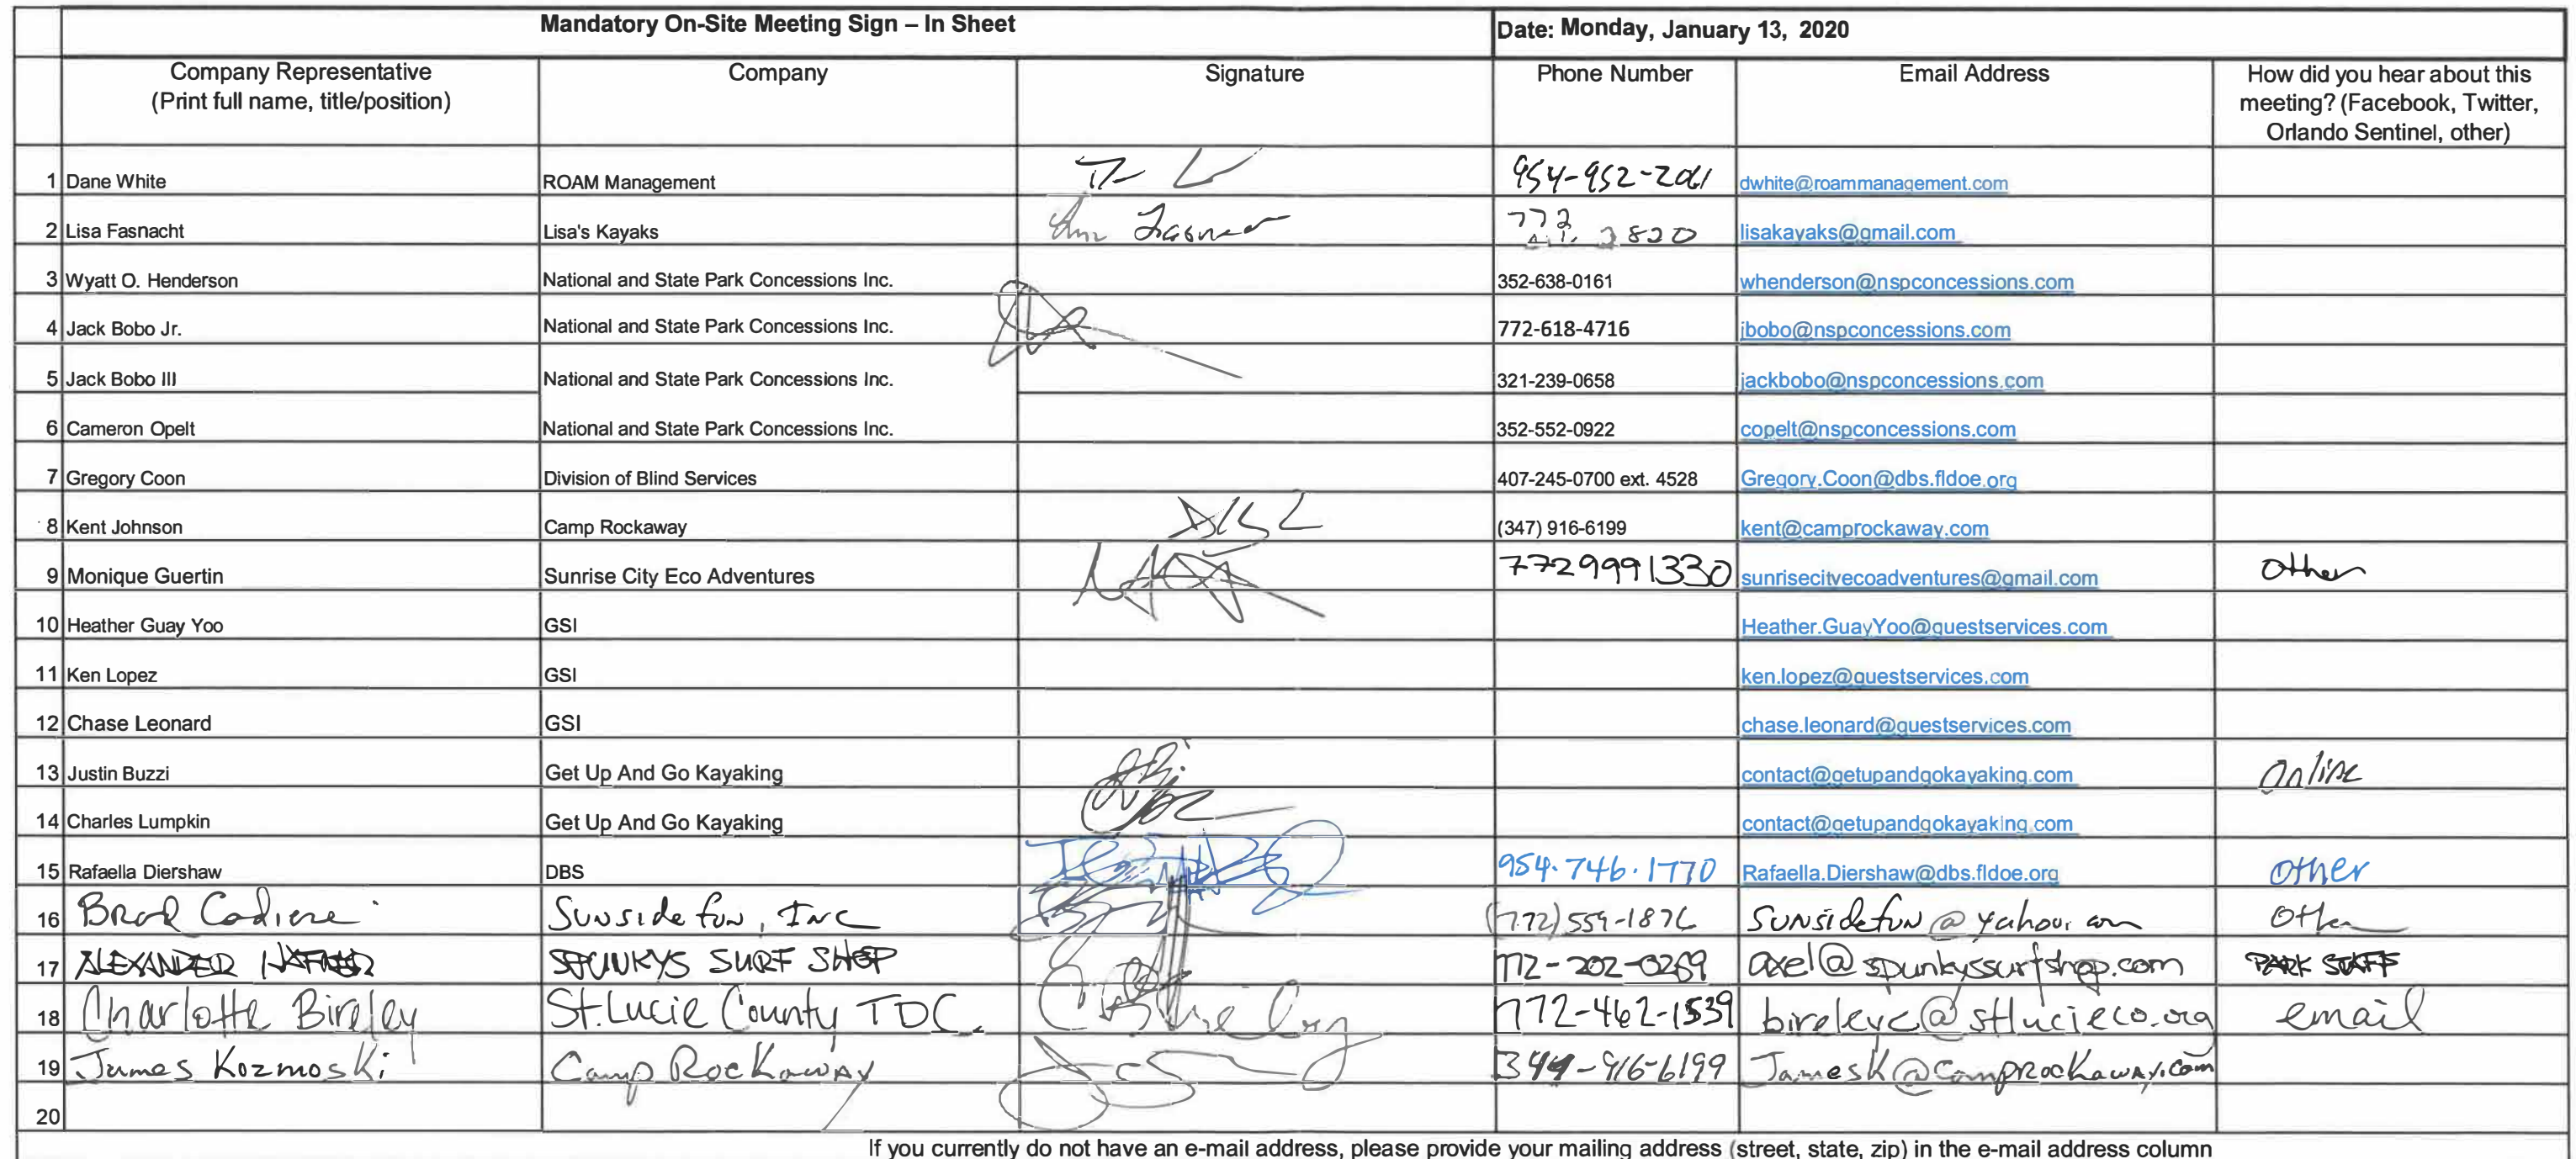 Mandatory On-Site Meeting Sign – In Sheet Date: Monday, January 13, 2020
Company Representative Company Signature Phone Number Email Address How did you hear about this
(Print full name, title/position) meeting? (Facebook, Twitter,
Orlando Sentinel, other)
1 Dane White ROAM Management 954-952-2061 dwhite@roammanagement.com
2 Lisa Fasnacht Lisa's Kayaks 772 lisakayaks@gmail.com
2820
3 Wyatt O. Henderson National and State Park Concessions Inc. 352-638-0161 whenderson@nspconcessions.com
4 Jack Bobo Jr. National and State Park Concessions Inc. 772-618-4716 jbobo@nspconcessions.com
5 Jack Bobo III National and State Park Concessions Inc. 321-239-0658 jackbobo@nspconcessions.com
6 Cameron Opelt National and State Park Concessions Inc. 352-552-0922 copelt@nspconcessions.com
7 Gregory Coon Division of Blind Services 407-245-0700 ext. 4528 Gregory.Coon@dbs.fldoe.org
8 Kent Johnson Camp Rockaway (347) 916-6199 kent@camprockaway.com
9 Monique Guertin Sunrise City Eco Adventures 7729991330 sunrisecityecoadventures@gmail.com Other
10 Heather Guay Yoo GSI Heather.GuayYoo@guestservices.com
11 Ken Lopez GSI ken.lopez@guestservices.com
12 Chase Leonard GSI chase.leonard@guestservices.com
13 Justin Buzzi Get Up And Go Kayaking contact@getupandgokayaking.com Online
14 Charles Lumpkin Get Up And Go Kayaking contact@getupandgokayaking.com
15 Rafaella Diershaw DBS 954.746.1770 Rafaella.Diershaw@dbs.fldoe.org other
16 Brad Sunside fun, Inc (772) 559-1876 Other
17 ALEXANDER SPUNKYS SURF SHOP 772-202-0259 axel@spunkyssurfshop.com PARK STAFF
18 Charlotte Bireley St. Lucie County TDC. 772-462-1539 bireleyc@stlucieco.org email
19 James Kozmoski Camp Rockaway JamesK@CampRockaway.com
20
If you currently do not have an e-mail address, please provide your mailing address (street, state, zip) in the e-mail address column